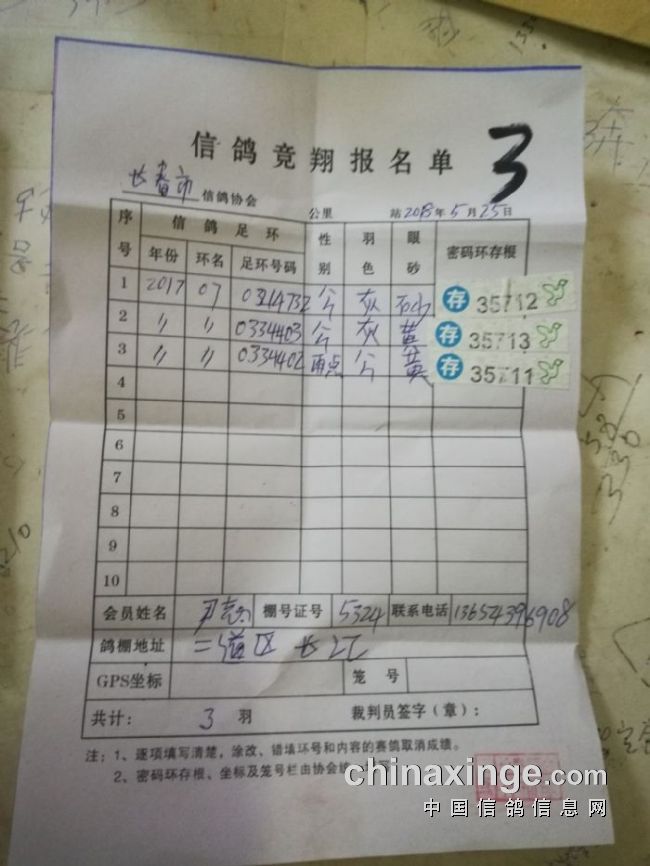 信鸽竞翔报名单 3
长春市信鸽协会 公里 站2018年5月25日
序号 信鸽足环 性别 羽色 眼砂 密码环存根
年份 环名 足环号码
1 2017 07 公 灰 砂 存 35712
2 〃 〃 0334403 公 灰 黄 存 35713
3 〃 〃 0334402 雨点 公 黄 存 35711
4
5
6
7
8
9
10
会员姓名 棚号证号 5324 联系电话 13654396908
鸽棚地址 二道区 长江
GPS坐标 笼号
共计: 3 羽 裁判员签字(章):
注:1、逐项填写清楚,涂改、错填环号和内容的赛鸽取消成绩。
2、密码环存根、坐标及笼号栏由协会
chinaxinge.com
中国信鸽信息网